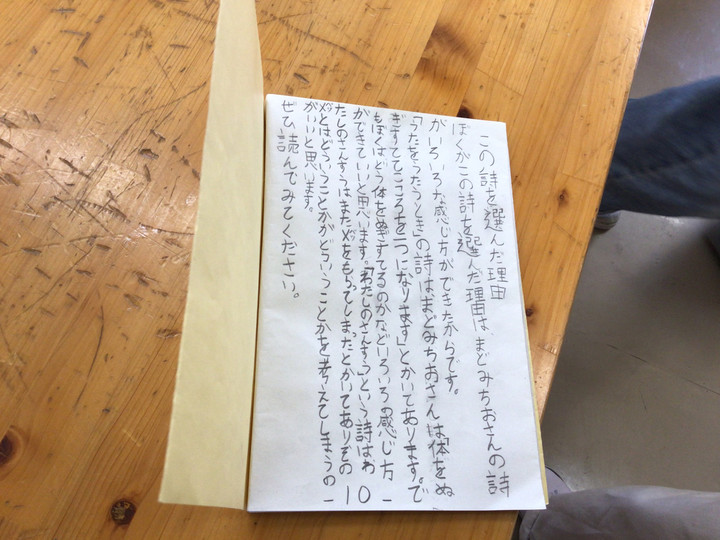 この詩を選んだ理由
ぼくがこの詩を選んだ理由は、まどみちおさんの詩
がいろいろな感じ方ができたからです。
「うたをうたうとき」の詩はまどみちおさんは「体をぬ
ぎすててこころを一つになります」とかいてあります。で
もぼくはどう体をぬぎすてるのかなどいろいろの感じ方
ができていいと思います。「わたしのさんすう」という詩はわ
たしのさんすうはまた×をもらってしまったとかいてありその
×とはどういうことかがどういうことかを考えてしまうの
がいいと思います。
ぜひ読んでみてください。